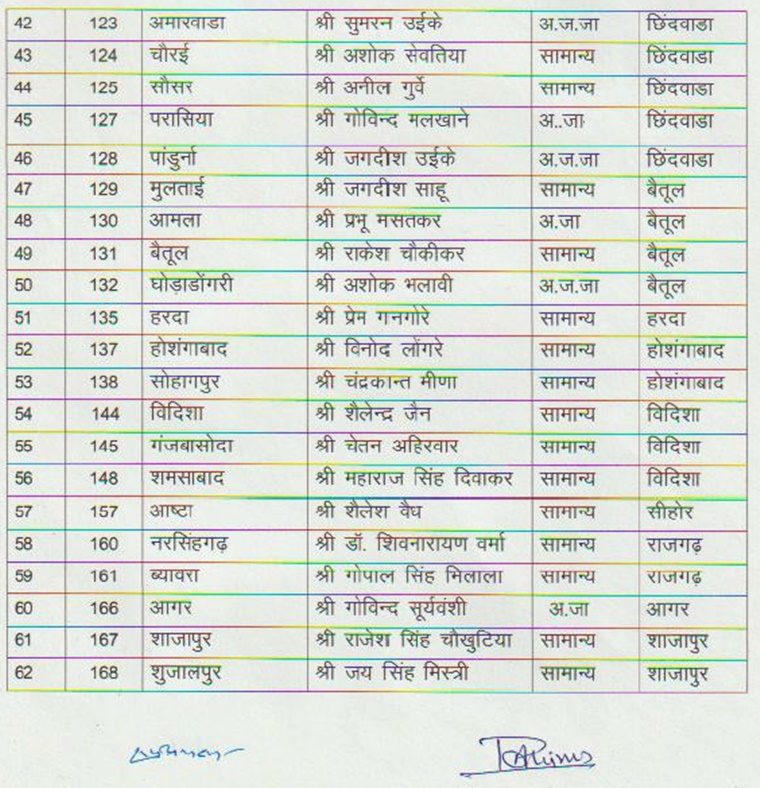 42 123 अमारवाडा श्री सुमरन उईके अ.ज.जा छिंदवाडा
43 124 चौरई श्री अशोक सेवतिया सामान्य छिंदवाडा
44 125 सौसर श्री अनील गुर्वे सामान्य छिंदवाडा
45 127 परासिया श्री गोविन्द मलखाने अ..जा छिंदवाडा
46 128 पांडुर्ना श्री जगदीश उईके अ.ज.जा छिंदवाडा
47 129 मुलताई श्री जगदीश साहू सामान्य बैतूल
48 130 आमला श्री प्रभू मसतकर अ.जा बैतूल
49 131 बैतूल श्री राकेश चौकीकर सामान्य बैतूल
50 132 घोड़ाडोंगरी श्री अशोक भलावी अ.ज.जा बैतूल
51 135 हरदा श्री प्रेम गनगोरे सामान्य हरदा
52 137 होशंगाबाद श्री विनोद लोंगरे सामान्य होशंगाबाद
53 138 सोहागपुर श्री चंद्रकान्त मीणा सामान्य होशंगाबाद
54 144 विदिशा श्री शैलेन्द्र जैन सामान्य विदिशा
55 145 गंजबासोदा श्री चेतन अहिरवार सामान्य विदिशा
56 148 शमसाबाद श्री महाराज सिंह दिवाकर सामान्य विदिशा
57 157 आष्टा श्री शैलेश वैध सामान्य सीहोर
58 160 नरसिंहगढ़ श्री डॉ. शिवनारायण वर्मा सामान्य राजगढ़
59 161 ब्यावरा श्री गोपाल सिंह मिलाला सामान्य राजगढ़
60 166 आगर श्री गोविन्द सूर्यवंशी अ.जा आगर
61 167 शाजापुर श्री राजेश सिंह चौखुटिया सामान्य शाजापुर
62 168 शुजालपुर श्री जय सिंह मिस्त्री सामान्य शाजापुर